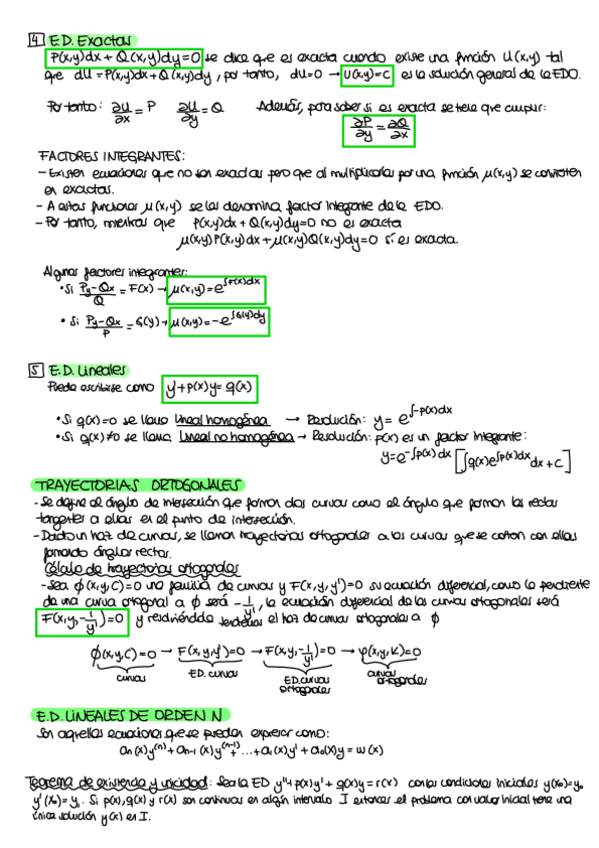 4 E.D. Exactas
P(x,y)dx + Q(x,y)dy = 0 se dice que es exacta cuando existe una función U(x,y) tal
que dU = P(x,y)dx + Q(x,y)dy, por tanto, dU = 0 → U(x,y) = C es la solución general de la EDO.
Por tanto: ∂U/∂x = P ∂U/∂y = Q Además, para saber si es exacta se tiene que cumplir:
∂P/∂y = ∂Q/∂x
FACTORES INTEGRANTES:
- Existen ecuaciones que no son exactas pero que al multiplicarlas por una función μ(x,y) se convierten
en exactas.
- A estas funciones μ(x,y) se les denomina factor integrante de la EDO.
- Por tanto, mientras que P(x,y)dx + Q(x,y)dy = 0 no es exacta
μ(x,y)P(x,y)dx + μ(x,y)Q(x,y)dy = 0 sí es exacta.
Algunos factores integrantes:
• Si (Py - Qx)/Q = F(x) → μ(x,y) = e^∫F(x)dx
• Si (Py - Qx)/P = G(y) → μ(x,y) = -e^∫G(y)dy
5 E.D. Lineales
Puede escribirse como y + p(x)y = q(x)
• Si q(x) = 0 se llama lineal homogénea → Resolución: y = e^∫-p(x)dx
• Si q(x) ≠ 0 se llama lineal no homogénea → Resolución: p(x) es un factor integrante:
y = e^-∫p(x)dx [∫q(x)e^∫p(x)dx dx + C]
TRAYECTORIAS ORTOGONALES
- Se define el ángulo de intersección que forman dos curvas como el ángulo que forman las rectas
tangentes a ellas en el punto de intersección.
- Dado un haz de curvas, se llaman trayectorias ortogonales a las curvas que se cortan con ellas
formando ángulos rectos.
Cálculo de trayectorias ortogonales
- Sea ϕ(x,y,C) = 0 una familia de curvas y F(x,y,y') = 0 su ecuación diferencial, como la pendiente
de una curva ortogonal a ϕ será -1/y', la ecuación diferencial de las curvas ortogonales será
F(x,y,-1/y') = 0 y resolviéndola tendremos el haz de curvas ortogonales a ϕ
ϕ(x,y,C) = 0 → F(x,y,y') = 0 → F(x,y,-1/y') = 0 → φ(x,y,K) = 0
curvas E.D. curvas E.D. curvas ortogonales curvas ortogonales
E.D. LINEALES DE ORDEN N
Son aquellas ecuaciones que se pueden expresar como:
an(x)y^(n) + an-1(x)y^(n-1) + ... + a1(x)y' + a0(x)y = w(x)
Teorema de existencia y unicidad: Sea la ED y'' + p(x)y' + q(x)y = r(x) con las condiciones iniciales y(x0) = y0
y'(x0) = y1. Si p(x), q(x) y r(x) son continuas en algún intervalo I entonces el problema con valor inicial tiene una
única solución y(x) en I.